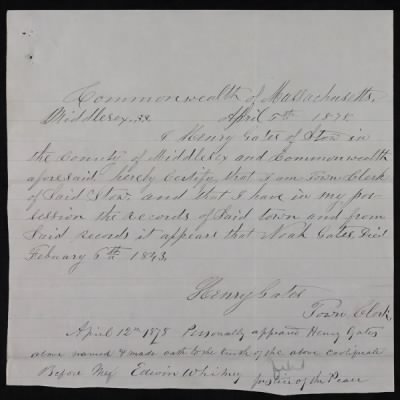 Commonwealth of Massachusetts.
Middlesex, ss April 5th 1878
I Henry Gates of Stow in
the County of Middlesex and Commonwealth
aforesaid hereby Certify, that I am Town Clerk
of Said Stow, and that I have in my pos-
session the records of Said town and from
Said records it appears that Noah Gates Died
Febuary 6th 1843.
Henry Gates
Town Clerk
April 12th 1878 Personally appeared Henry Gates
above named & made oath to the truth of the above certificate
Before Me Edwin Whitney
Justice of the Peace